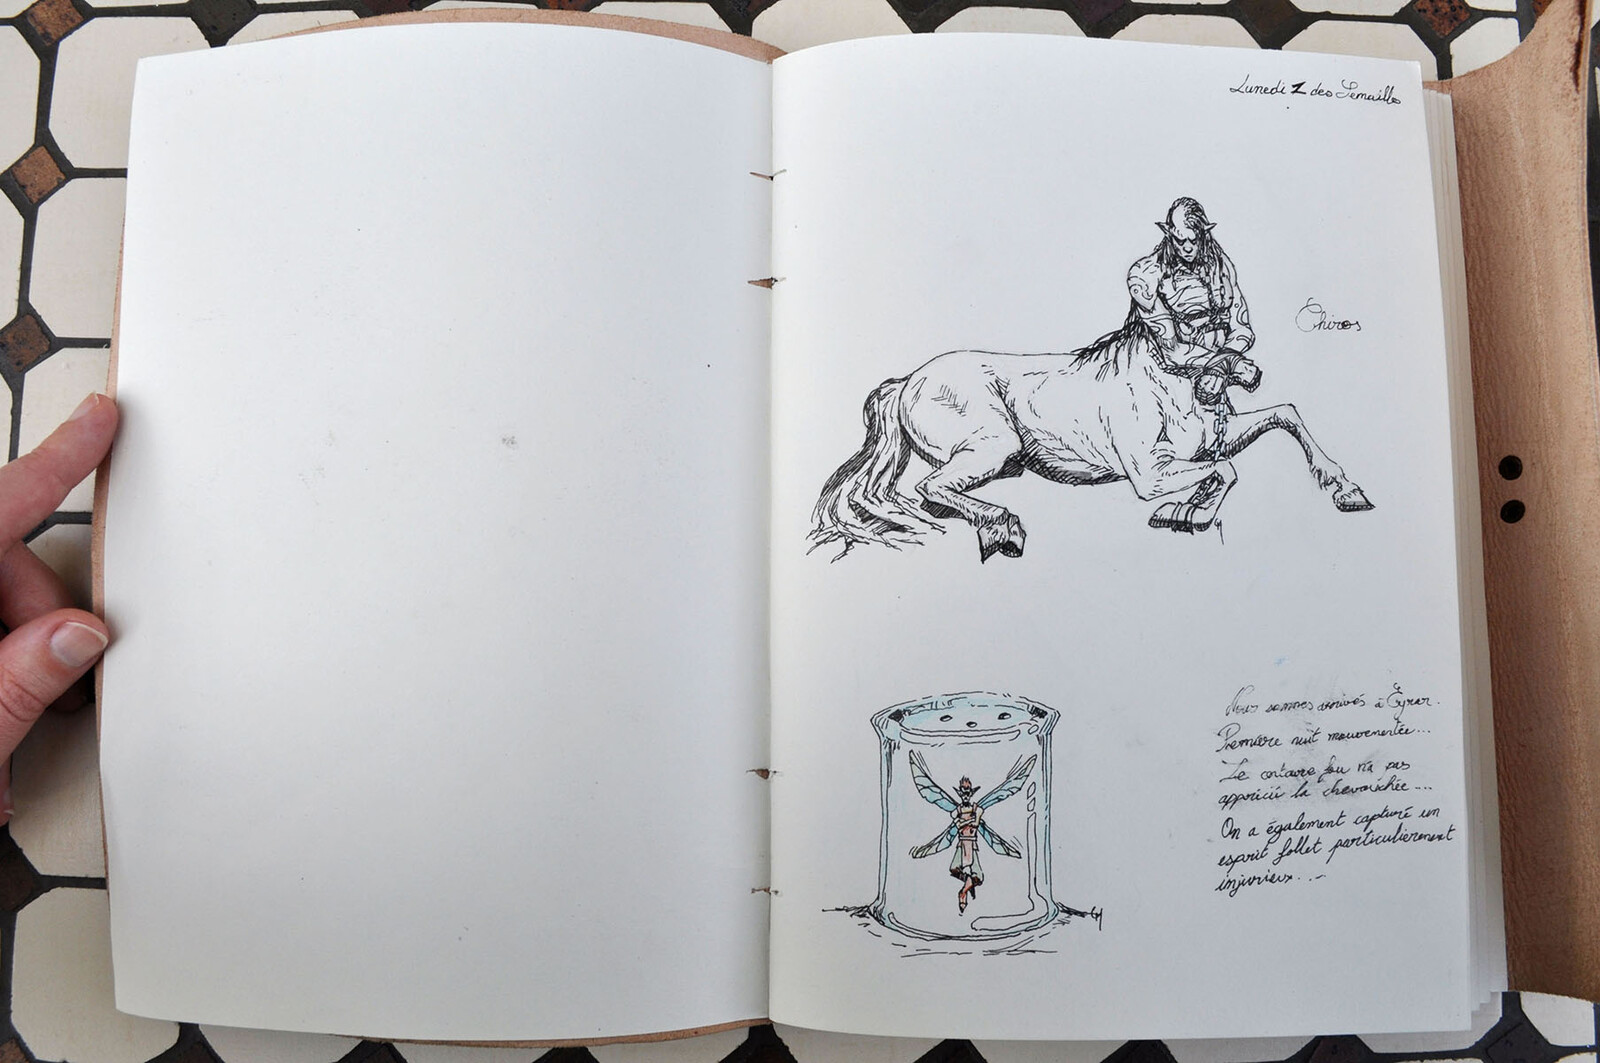 Lunedi 1 des Semailles
Chiros
Nous sommes arrivés à Eyrar.
Première nuit mouvementée...
Le centaure fou n'a pas
apprécié la chevauchée...
On a également capturé un
esprit follet particulièrement
injurieux...